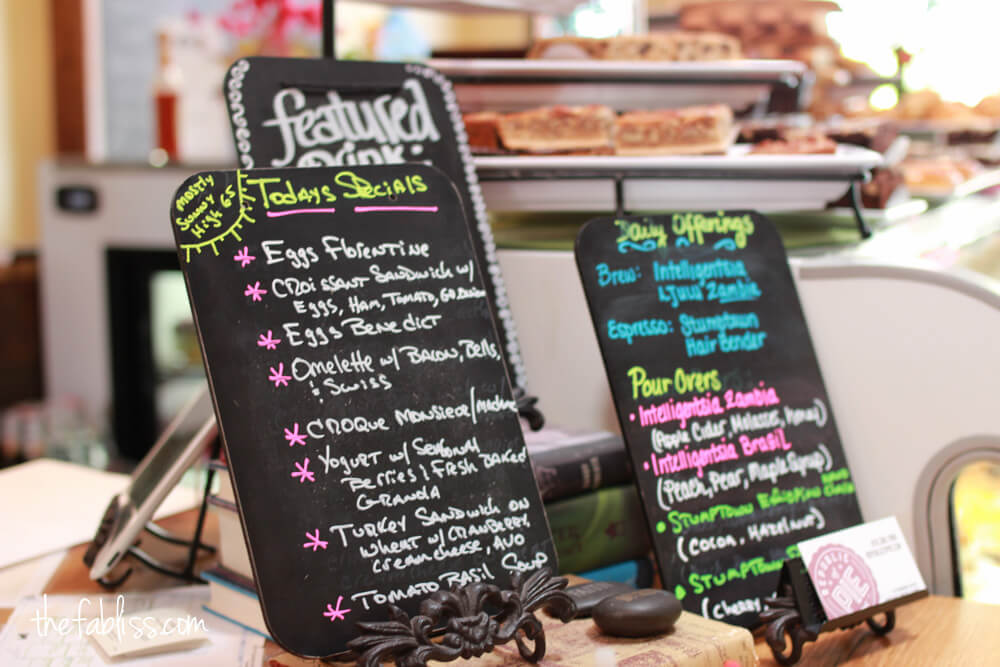 featured
Drink
mostly
Sunny
High 65
Todays Specials
* Eggs Florentine
* Croissant Sandwich w/
Eggs, Ham, Tomato,
* Eggs Benedict
* Omelette w/ Bacon, Bells,
& Swiss
* Croque Monsieur/Madame
* Yogurt w/ Seasonal
Berries & Fresh Baked
Granola
* Turkey Sandwich on
wheat w/ cranberry,
cream cheese, Avo
* Tomato Basil Soup
Daily Offerings
Brew: Intelligentsia
Zambia
Espresso: Stumptown
Hair Bender
Pour Overs
• Intelligentsia Zambia
(Apple Cider, Molasses, Honey)
• Intelligentsia Brasil
(Peach, Pear, Maple Syrup)
• Stumptown
(Cocoa, Hazelnut)
• Stumptown
(cherry,
PUBLIC
PE
thefabliss.com